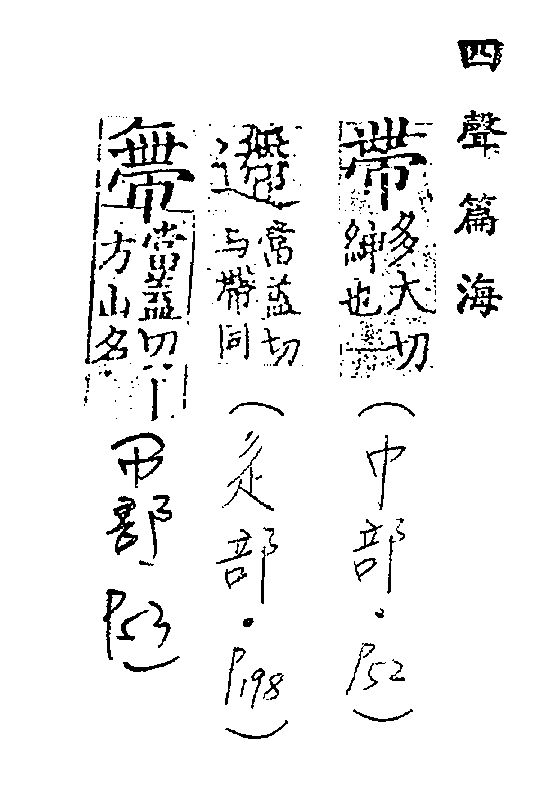 四聲篇海
帶 多大切 紳也 (巾部·P52)
遰 當蓋切 与帶同 (辵部·P198)
當蓋切 丨 方山名 巾部、P53)